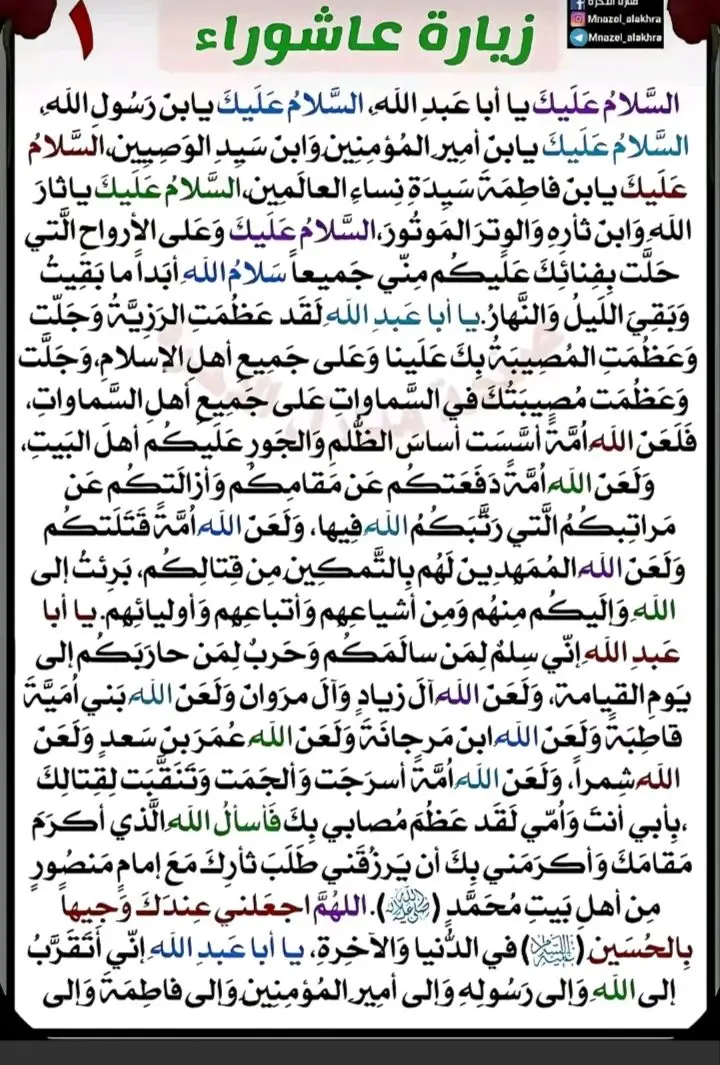 منازل الآخرة
Mnazel_alakhra
Mnazel_alakhra
١
زيارة عاشوراء
السَّلامُ عَلَيكَ يا أبا عَبدِ اللهِ، السَّلامُ عَلَيكَ يابنَ رَسُولِ اللهِ،
السَّلامُ عَلَيكَ يابنَ أميرِ المُؤمِنِينَ وَابنَ سَيِدِ الوَصِيينِ، السَّلامُ
عَلَيكَ يابنَ فاطِمَةَ سَيِدَةِ نِساءِ العالَمِينِ، السَّلامُ عَلَيكَ ياثارَ
اللهِ وَابنَ ثأرِهِ وَالوِترَ المَوتُورَ، السَّلامُ عَلَيكَ وَعَلى الأرواحِ الَّتي
حَلَّت بِفِنائِكَ عَلَيكُم مِنّي جَميعاً سَلامُ اللهِ أبَداً ما بَقِيتُ
وَبَقِيَ اللَيلُ وَالنَّهارُ. يا أبا عَبدِ اللهِ لَقَد عَظُمَتِ الرَزِيَّةُ وَجَلّت
وَعَظُمَتِ المُصِيبَةُ بِكَ عَلَينا وَعَلى جَمِيعِ أهلِ الإسلامِ، وَجَلَّت
وَعَظُمَت مُصِيبَتُكَ في السَّماواتِ عَلى جَمِيعِ أهلِ السَّماواتِ،
فَلَعَنَ اللهُ اُمَّةً أسَّسَت أساسَ الظُّلمِ وَالجَورِ عَلَيكُم أهلَ البَيتِ،
وَلَعَنَ اللهُ اُمَّةً دَفَعَتكُم عَن مَقامِكُم وَأزالَتكُم عَن
مَراتِبِكُمُ الَّتي رَتَّبَكُمُ اللهُ فِيها، وَلَعَنَ اللهُ اُمَّةً قَتَلَتكُم
وَلَعَنَ اللهُ المُمَهِدِينَ لَهُم بِالتَّمكِينِ مِن قِتالِكُم، بَرِئتُ إلى
اللهِ وَإلَيكُم مِنهُم وَمِن أشياعِهِم وَأتباعِهِم وَأوليائِهِم. يا أبا
عَبدِ اللهِ إنّي سِلمٌ لِمَن سالَمَكُم وَحَربٌ لِمَن حارَبَكُم إلى
يَومِ القِيامةِ، وَلَعَنَ اللهُ آلَ زِيادٍ وَآلَ مروَانَ وَلَعَنَ اللهُ بَني اُمَيَّةَ
قاطِبَةً وَلَعَنَ اللهُ ابنَ مَرجانَةَ وَلَعَنَ اللهُ عُمَرَ بنَ سَعدٍ وَلَعَنَ
اللهُ شِمراً، وَلَعَنَ اللهُ اُمَّةً أسرَجَت وَألجَمَت وَتَنَقَّبَت لِقِتالِكَ
،بِأبي أنتَ وَاُمّي لَقَد عَظُمَ مُصابي بِكَ فَأسألُ اللهَ الَّذي أكرَمَ
مَقامَكَ وَأكرَمَني بِكَ أن يَرزُقَني طَلَبَ ثأرِكَ مَعَ إمامٍ مَنصُورٍ
مِن أهلِ بَيتِ مُحَمَّدٍ (ﷺ). اللهُمَّ اجعَلني عِندَكَ وَجِيهاً
بِالحُسَينِ (عليه السلام) في الدُّنيا وَالآخرةِ، يا أبا عَبدِ اللهِ إنّي أتَقَرَّبُ
إلى اللهِ وَإلى رَسُولِهِ وَإلى أمِيرِ المُؤمِنِينَ وَإلى فاطِمَةَ وَإلى